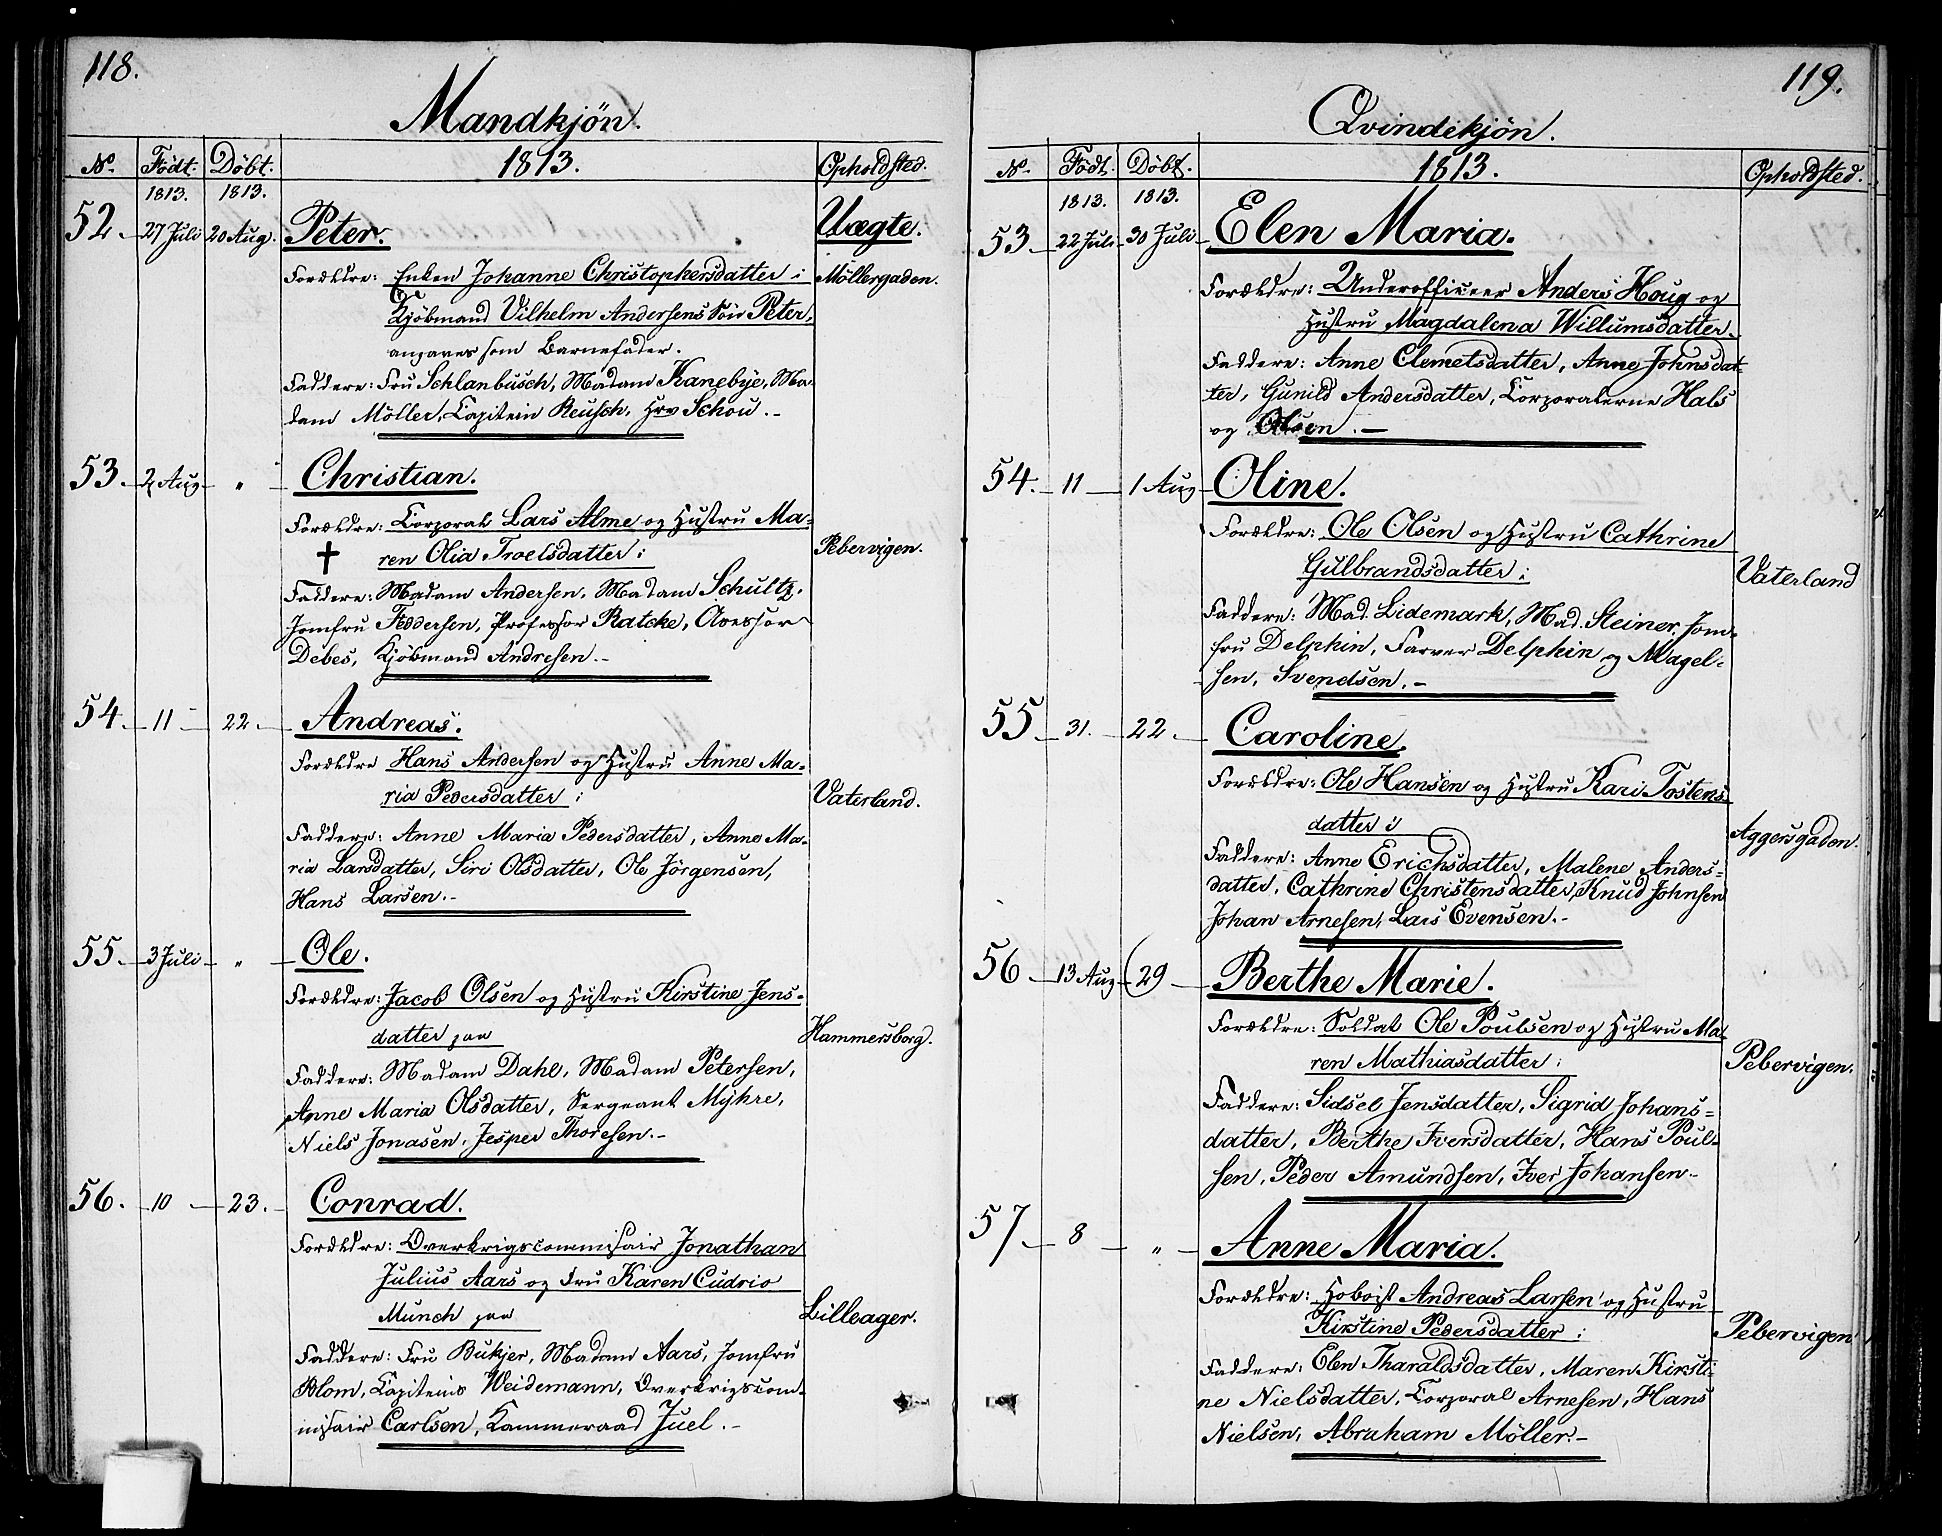 118.
Mandkjön.
No. Födt. Döbt. 1813. Opholdsted.
1813. 1813.
52. 27 Juli 20 Aug. Peter. Uægte.
Forældre: Enken Johanne Christophersdatter i Möllergaden.
Kjöbmand Vilhelm Andersens Sön Peter,
angaves som Barnefader.
Faddere: Fru Schlanbusch, Madam Kanebye, Ma-
dam Möller, Capitein Reusch, Hrr Schou.-
53. 2 Aug " Christian.
Forældre: Corporal Lars Alme og Hustru Ma-
ren Olia Troelsdatter i Pebervigen.
Faddere: Madam Andersen, Madam Schultz,
Jomfru Feddersen, Professor Ratcke, Assessor
Debes, Kjöbmand Andresen.-
54. 11 22 Andreas.
Forældre Hans Andersen og Hustru Anne Ma-
ria Pedersdatter i Vaterland.
Faddere: Anne Maria Pedersdatter, Anne Ma-
ria Larsdatter, Siri Olsdatter, Ole Jörgensen,
Hans Larsen.-
55. 3 Juli " Ole.
Forældre: Jacob Olsen og Hustru Kirstine Jens-
datter paa Hammersborg.
Faddere: Madam Dahl, Madam Petersen,
Anne Maria Olsdatter, Sergeant Myhre,
Niels Jonasen, Jesper Thoresen.-
56. 10 23. Conrad.
Forældre: Overkrigscommisair Jonathan
Julius Aars og Fru Karen Cudrio
Munch paa Lilleager.
Faddere: Fru Bukjer, Madam Aars, Jomfru
Blom, Capiteins Weidemann, Overkrigscom-
misair Carlsen, Kammeraad Juel.-
119.
Qvindekjön.
No. Födt. Döbt. 1813. Opholdsted.
1813. 1813.
53. 22 Juli 30 Juli Elen Maria.
Forældre: Underofficeer Anders Houg og
Hustru Magdalena Willumsdatter.
Faddere: Anne Clemetsdatter, Anne Johnsdat-
ter, Gunild Andersdatter, Corporalerne Hals
og Olsen.-
54. 11 1 Aug Oline.
Forældre: Ole Olsen og Hustru Cathrine
Gulbrandsdatter i Vaterland
Faddere: Mad. Lidemark, Mad. Steiner, Jom-
fru Delphin, Farver Delphin og Magel-
sen, Svendsen.-
55 31. 22. Caroline.
Forældre: Ole Hansen og Hustru Kari Tostens-
datter i Aggersgaden.
Faddere: Anne Erichsdatter, Malene Anders-
datter, Cathrine Christensdatter, Knud Johnsen
Johan Arnesen, Lars Evensen.-
56 13 Aug (29 Berthe Marie.
Forældre: Soldat Ole Poulsen og Hustru Ma-
ren Mathiasdatter i Pebervigen.
Faddere: Sidsel Jensdatter, Sigrid Johans-
datter, Berthe Iversdatter, Hans Poul-
sen, Peder Amundsen, Iver Johansen.-
57 8 " Anne Maria.
Forældre: Hoboist Andreas Larsen og Hustru
Kirstine Pedersdatter i Pebervigen
Faddere: Elen Tharaldsdatter, Maren Kirsti-
ne Nielsdatter, Corporal Arnesen, Hans
Nielsen, Abraham Möller.-